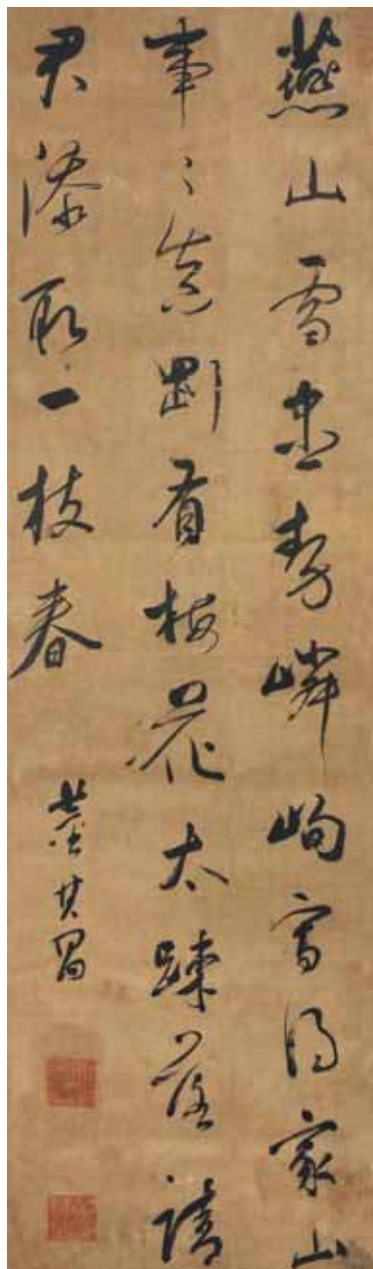 燕山雪盡勢嶙峋寫得家山
事〻真剛看梅花太疎落請
君添取一枝春
董其昌